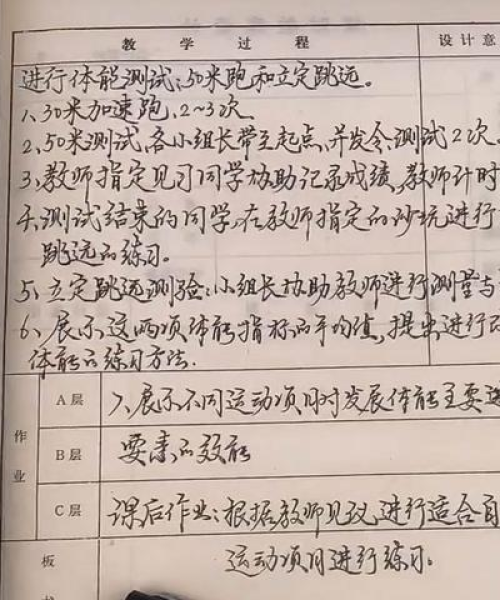 教 学 过 程 设计意
进行体能测试:50米跑和立定跳远。
1、30米加速跑,2~3次
2、50米测试,各小组长带至起点,并发令,测试2次。
3、教师指定见习同学协助记录成绩,教师计时
4、测试结束的同学,在教师指定的沙坑进行
跳远的练习。
5、立定跳远测验:小组长协助教师进行测量与
6、展示这两项体能指标的平均值,提出进行
体能的练习方法.
作业
A层 7、展示不同运动项目对发展体能主要
B层 要素的效能
C层 课后作业:根据教师见议,进行适合自
板 运动项目进行练习。